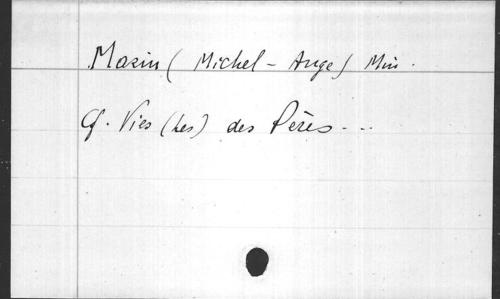 Marin (Michel-Ange) Min.
Cf. Vies (Les) des Pères...